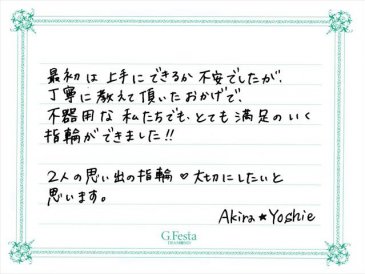 最初は上手にできるか不安でしたが、
丁寧に教えて頂いたおかげで、
不器用な私たちでも、とても満足のいく
指輪ができました!!
2人の思い出の指輪♡大切にしたいと
思います。
Akira★Yoshie
G.Festa